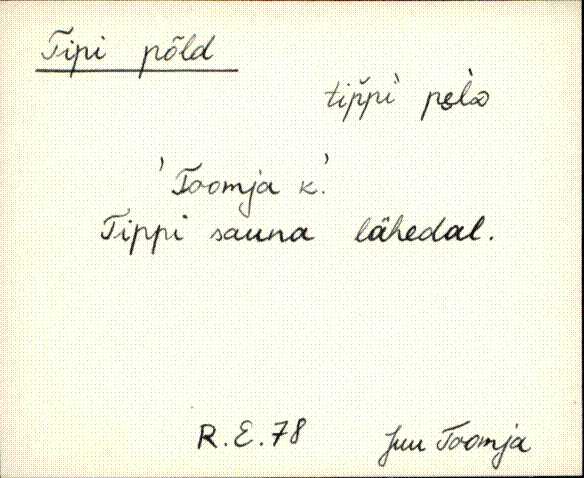 Tipi põld
tip̆pì pe̮lᴅ
'Toomja k.'
Tippi sauna lähedal.
R.E.78 Juu Toomja